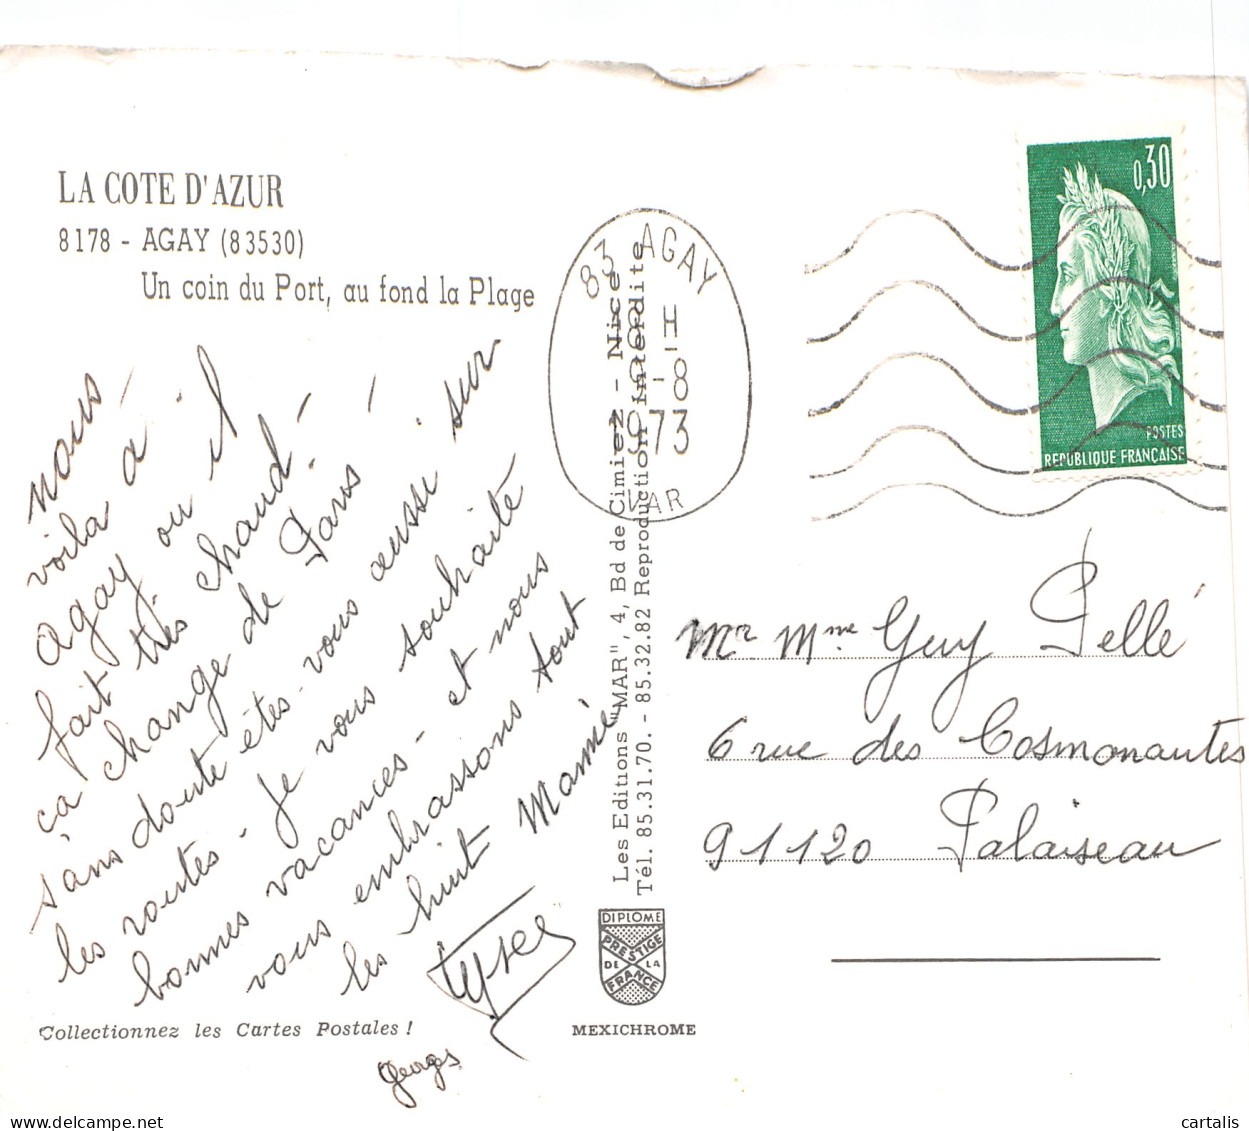 LA COTE D'AZUR
8178 - AGAY (83530)
Un coin du Port, au fond la Plage
nous
voila a
agay ou il
fait très chaud -
ça change de Paris -
sans doute êtes-vous aussi sur
les routes - je vous souhaite
bonnes vacances - et nous
vous embrassons tout
les huit Mamie
Georges
Collectionnez les Cartes Postales !
83 AGAY
H
-8
1973
VAR
Les Editions "MAR", 4, Bd de Cimiez - Nice
Tél. 85.31.70. - 85.32.82 Reproduction interdite
DIPLOME
PRESTIGE
DE LA
FRANCE
MEXICHROME
0,30
POSTES
REPUBLIQUE FRANÇAISE
Mr Mme Guy Pellé
6 rue des Cosmonautes
91120 Palaiseau
cartalis